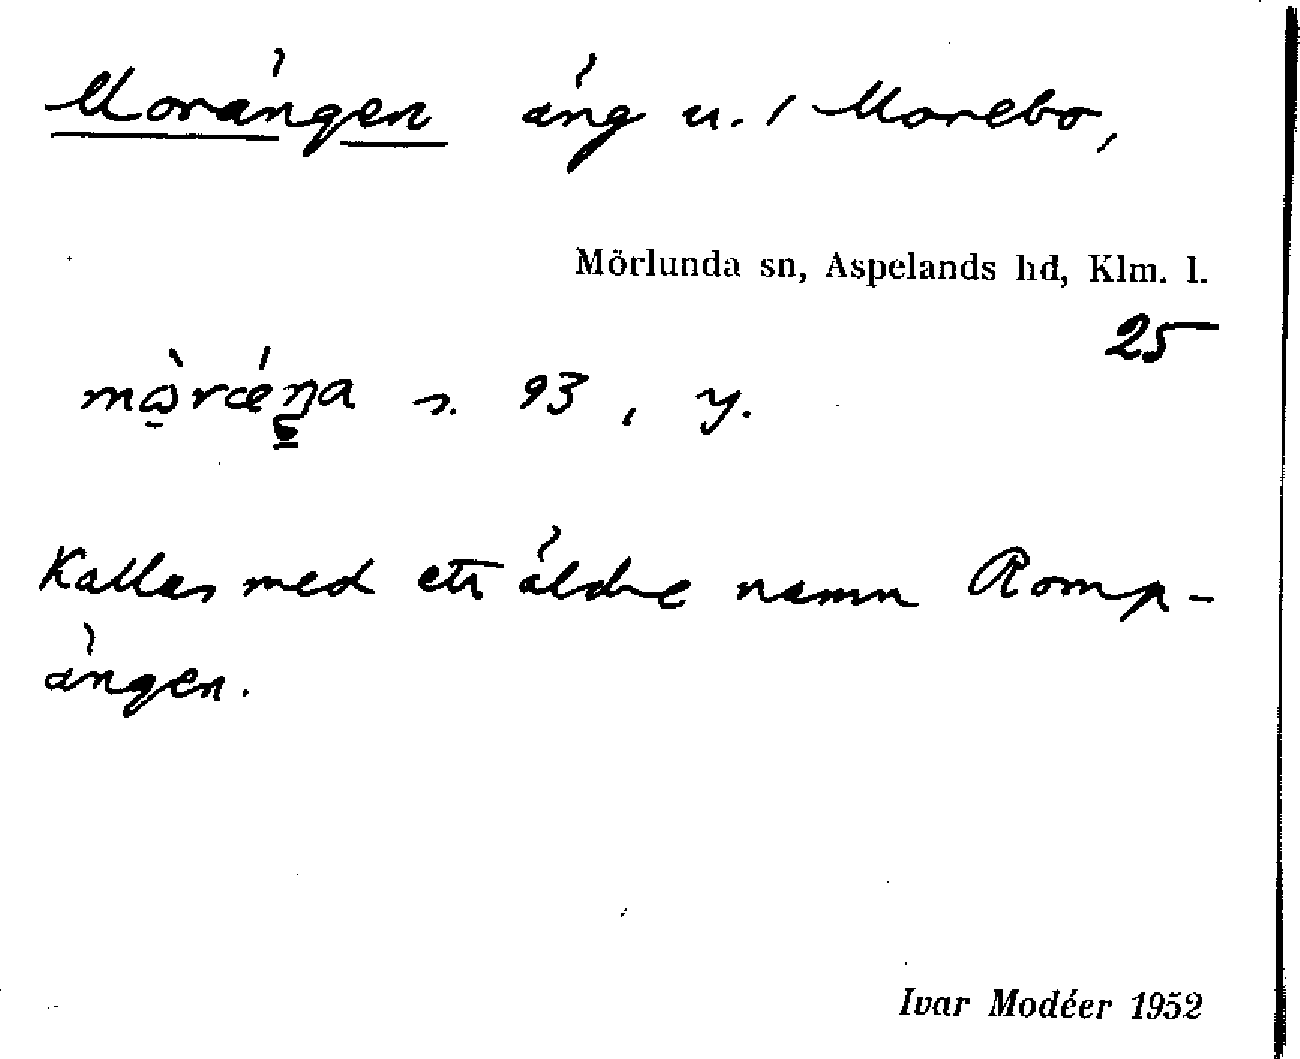 Morängen äng u. / Morebo,
Mörlunda sn, Aspelands hd, Klm. l.
25
s. 93, y.
Kallas med ett äldre namn Romp-
ängen.
Ivar Modéer 1952